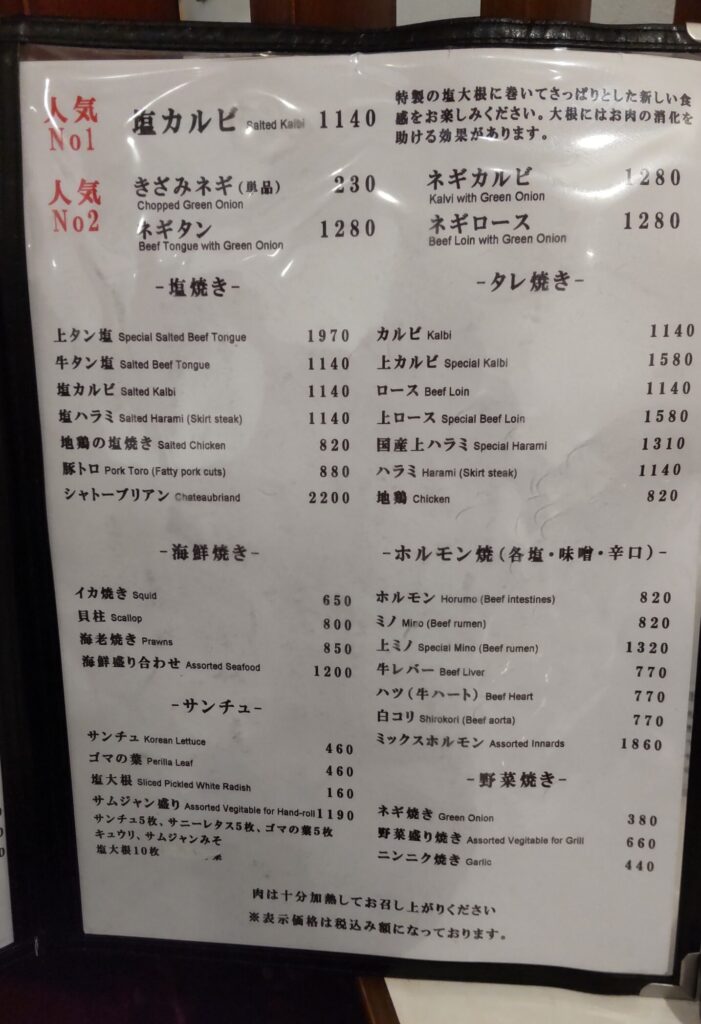 人気 No1
塩カルビ Salted Kalbi 1140
特製の塩大根に巻いてさっぱりとした新しい食
感をお楽しみください。大根にはお肉の消化を
助ける効果があります。
人気 No2
きざみネギ(単品) 230
Chopped Green Onion
ネギタン 1280
Beef Tongue with Green Onion
ネギカルビ 1280
Kalvi with Green Onion
ネギロース 1280
Beef Loin with Green Onion
-塩焼き-
上タン塩 Special Salted Beef Tongue 1970
牛タン塩 Salted Beef Tongue 1140
塩カルビ Salted Kalbi 1140
塩ハラミ Salted Harami (Skirt steak) 1140
地鶏の塩焼き Salted Chicken 820
豚トロ Pork Toro (Fatty pork cuts) 880
シャトーブリアン Chateaubriand 2200
-タレ焼き-
カルビ Kalbi 1140
上カルビ Special Kalbi 1580
ロース Beef Loin 1140
上ロース Special Beef Loin 1580
国産上ハラミ Special Harami 1310
ハラミ Harami (Skirt steak) 1140
地鶏 Chicken 820
-海鮮焼き-
イカ焼き Squid 650
貝柱 Scallop 800
海老焼き Prawns 850
海鮮盛り合わせ Assorted Seafood 1200
-ホルモン焼(各塩・味噌・辛口)-
ホルモン Horumo (Beef intestines) 820
ミノ Mino (Beef rumen) 820
上ミノ Special Mino (Beef rumen) 1320
牛レバー Beef Liver 770
ハツ(牛ハート) Beef Heart 770
白コリ Shirokori (Beef aorta) 770
ミックスホルモン Assorted Innards 1860
-サンチュ-
サンチュ Korean Lettuce 460
ゴマの葉 Perilla Leaf 460
塩大根 Sliced Pickled White Radish 160
サムジャン盛り Assorted Vegitable for Hand-roll 1190
サンチュ5枚、サニーレタス5枚、ゴマの葉5枚
キュウリ、サムジャンみそ
塩大根10枚
-野菜焼き-
ネギ焼き Green Onion 380
野菜盛り焼き Assorted Vegitable for Grill 660
ニンニク焼き Garlic 440
肉は十分加熱してお召し上がりください
※表示価格は税込み額になっております。